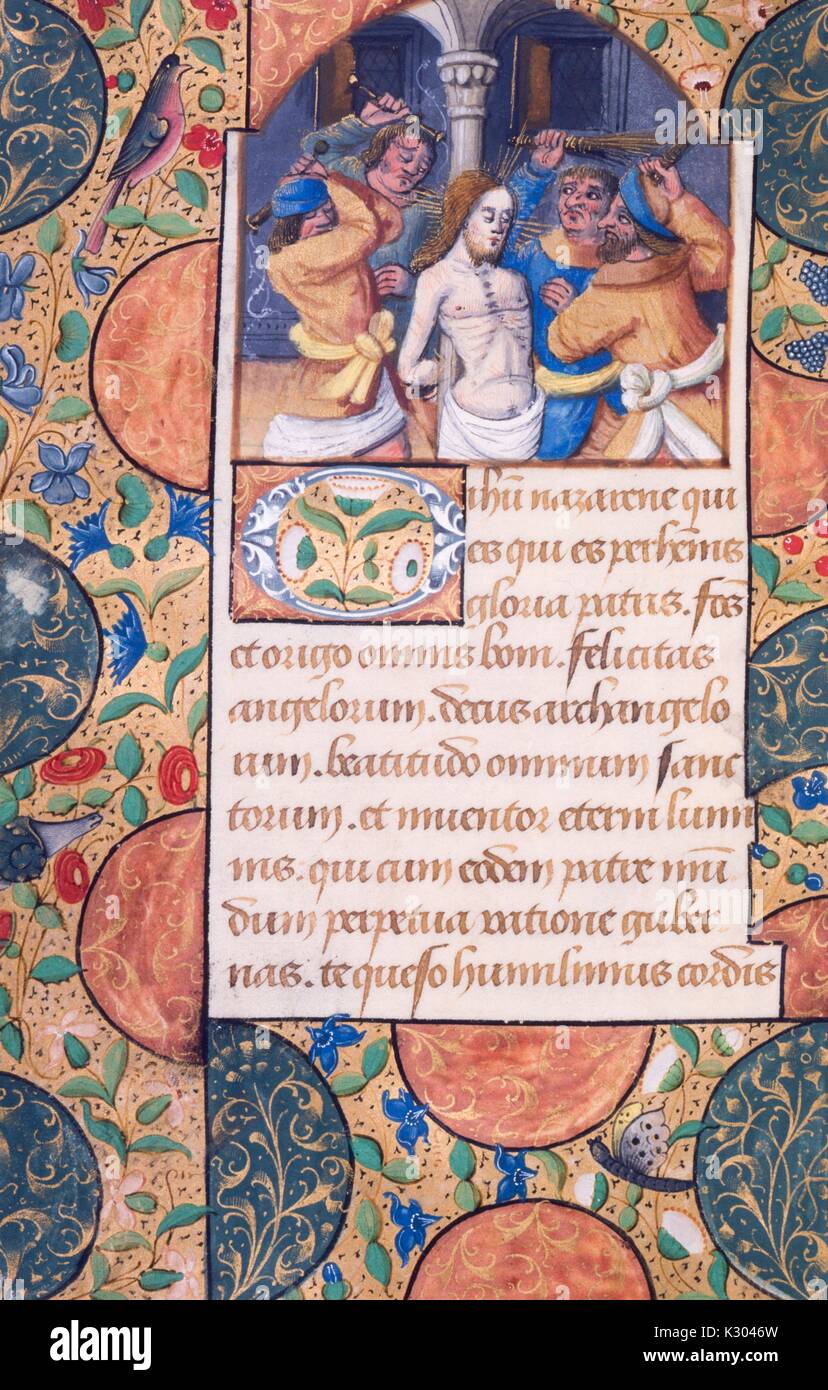 O ihu nazarene qui
es qui es perhennis
gloria patris. fons
et origo omnis boni. felicitas
angelorum. decus archangelo
rum. beatitudo omnium sanc
torum. et inuentor eterni lumi
nis. qui cum eodem patre mun
dum perpetua ratione guber
nas. te queso humilimus cordis
alamy
alamy stock photo
K3046W
www.alamy.com